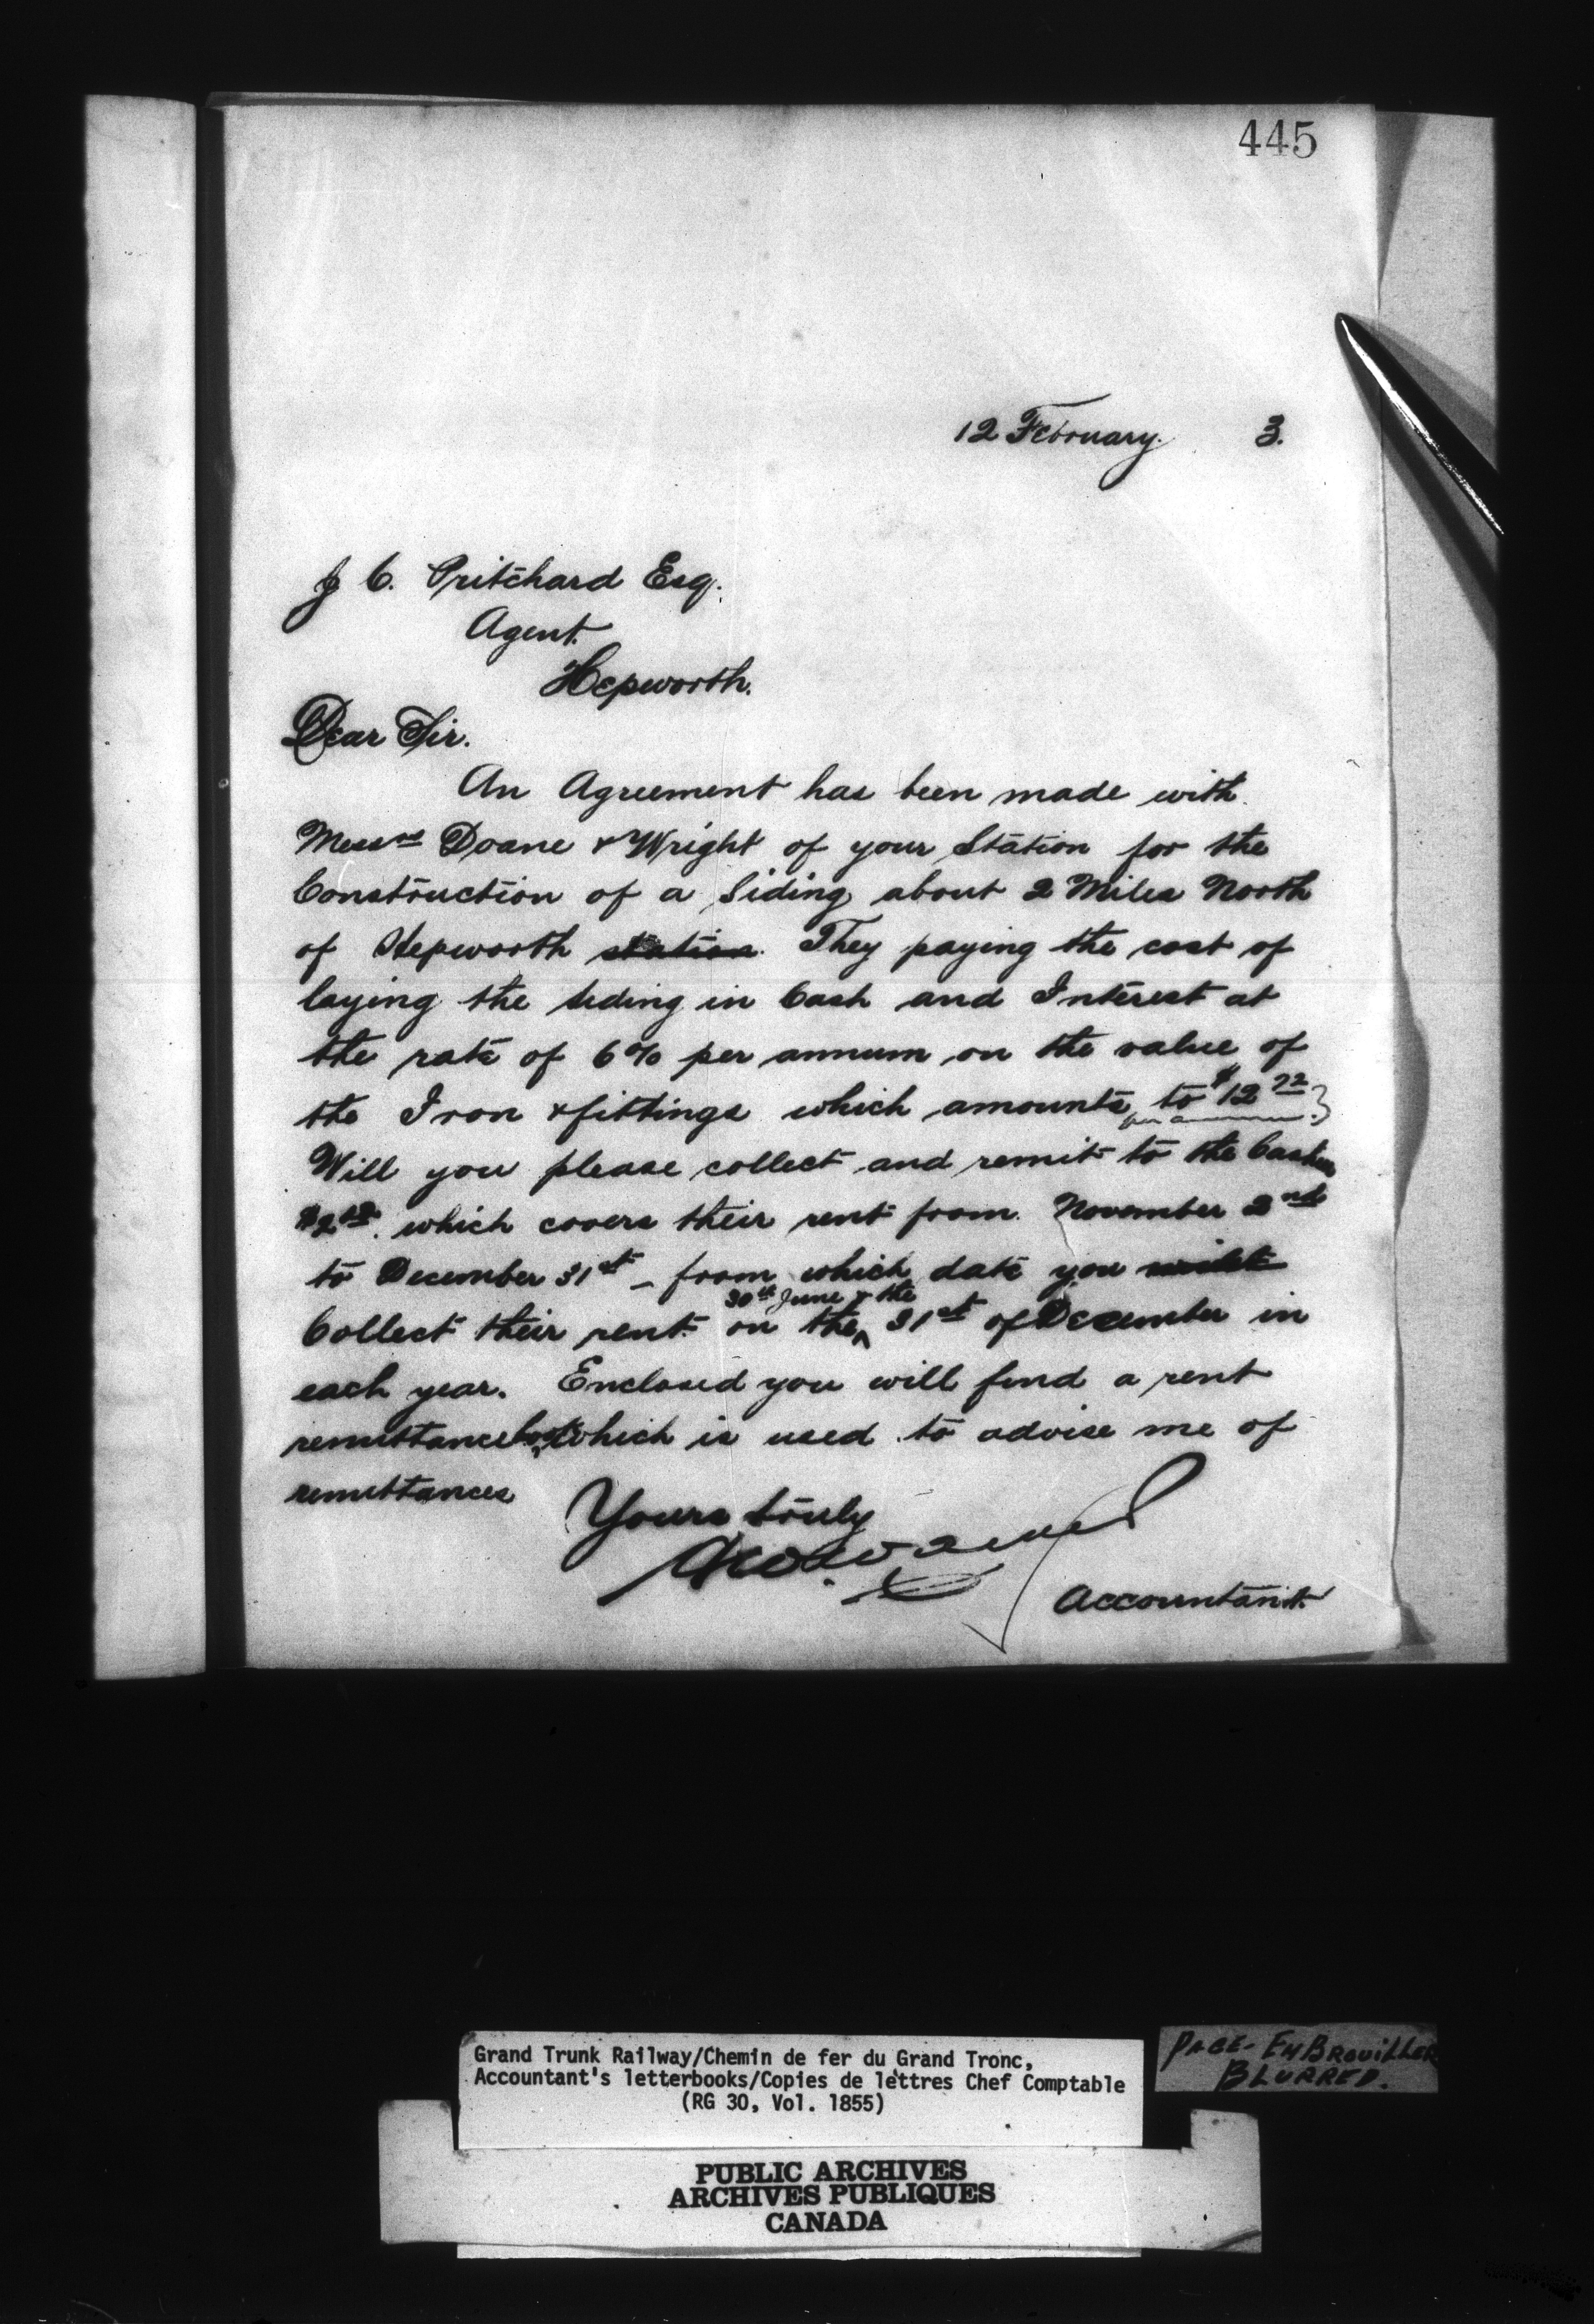 445
12 February. 3.
J C. Pritchard Esq.
Agent.
Hepworth.
Dear Sir.
An Agreement has been made with
Messrs Doane & Wright of your Station for the
Construction of a Siding about 2 Miles North
of Hepworth station. They paying the cost of
laying the siding in Cash and Interest at
the rate of 6% per annum on the value of
the Iron & fittings which amounts to $12 72
per annum
Will you please collect and remit to the Cashier
which covers their rent from November 2nd
to December 31st - from which date you
30th June & the
Collect their rent on the 31st of December in
each year. Enclosed you will find a rent
remittance which is used to advise me of
remittances
Yours truly
Accountant.
Grand Trunk Railway/Chemin de fer du Grand Tronc,
Accountant's letterbooks/Copies de lettres Chef Comptable
(RG 30, Vol. 1855)
PAGE EMBROUILLER
BLURRED.
PUBLIC ARCHIVES
ARCHIVES PUBLIQUES
CANADA